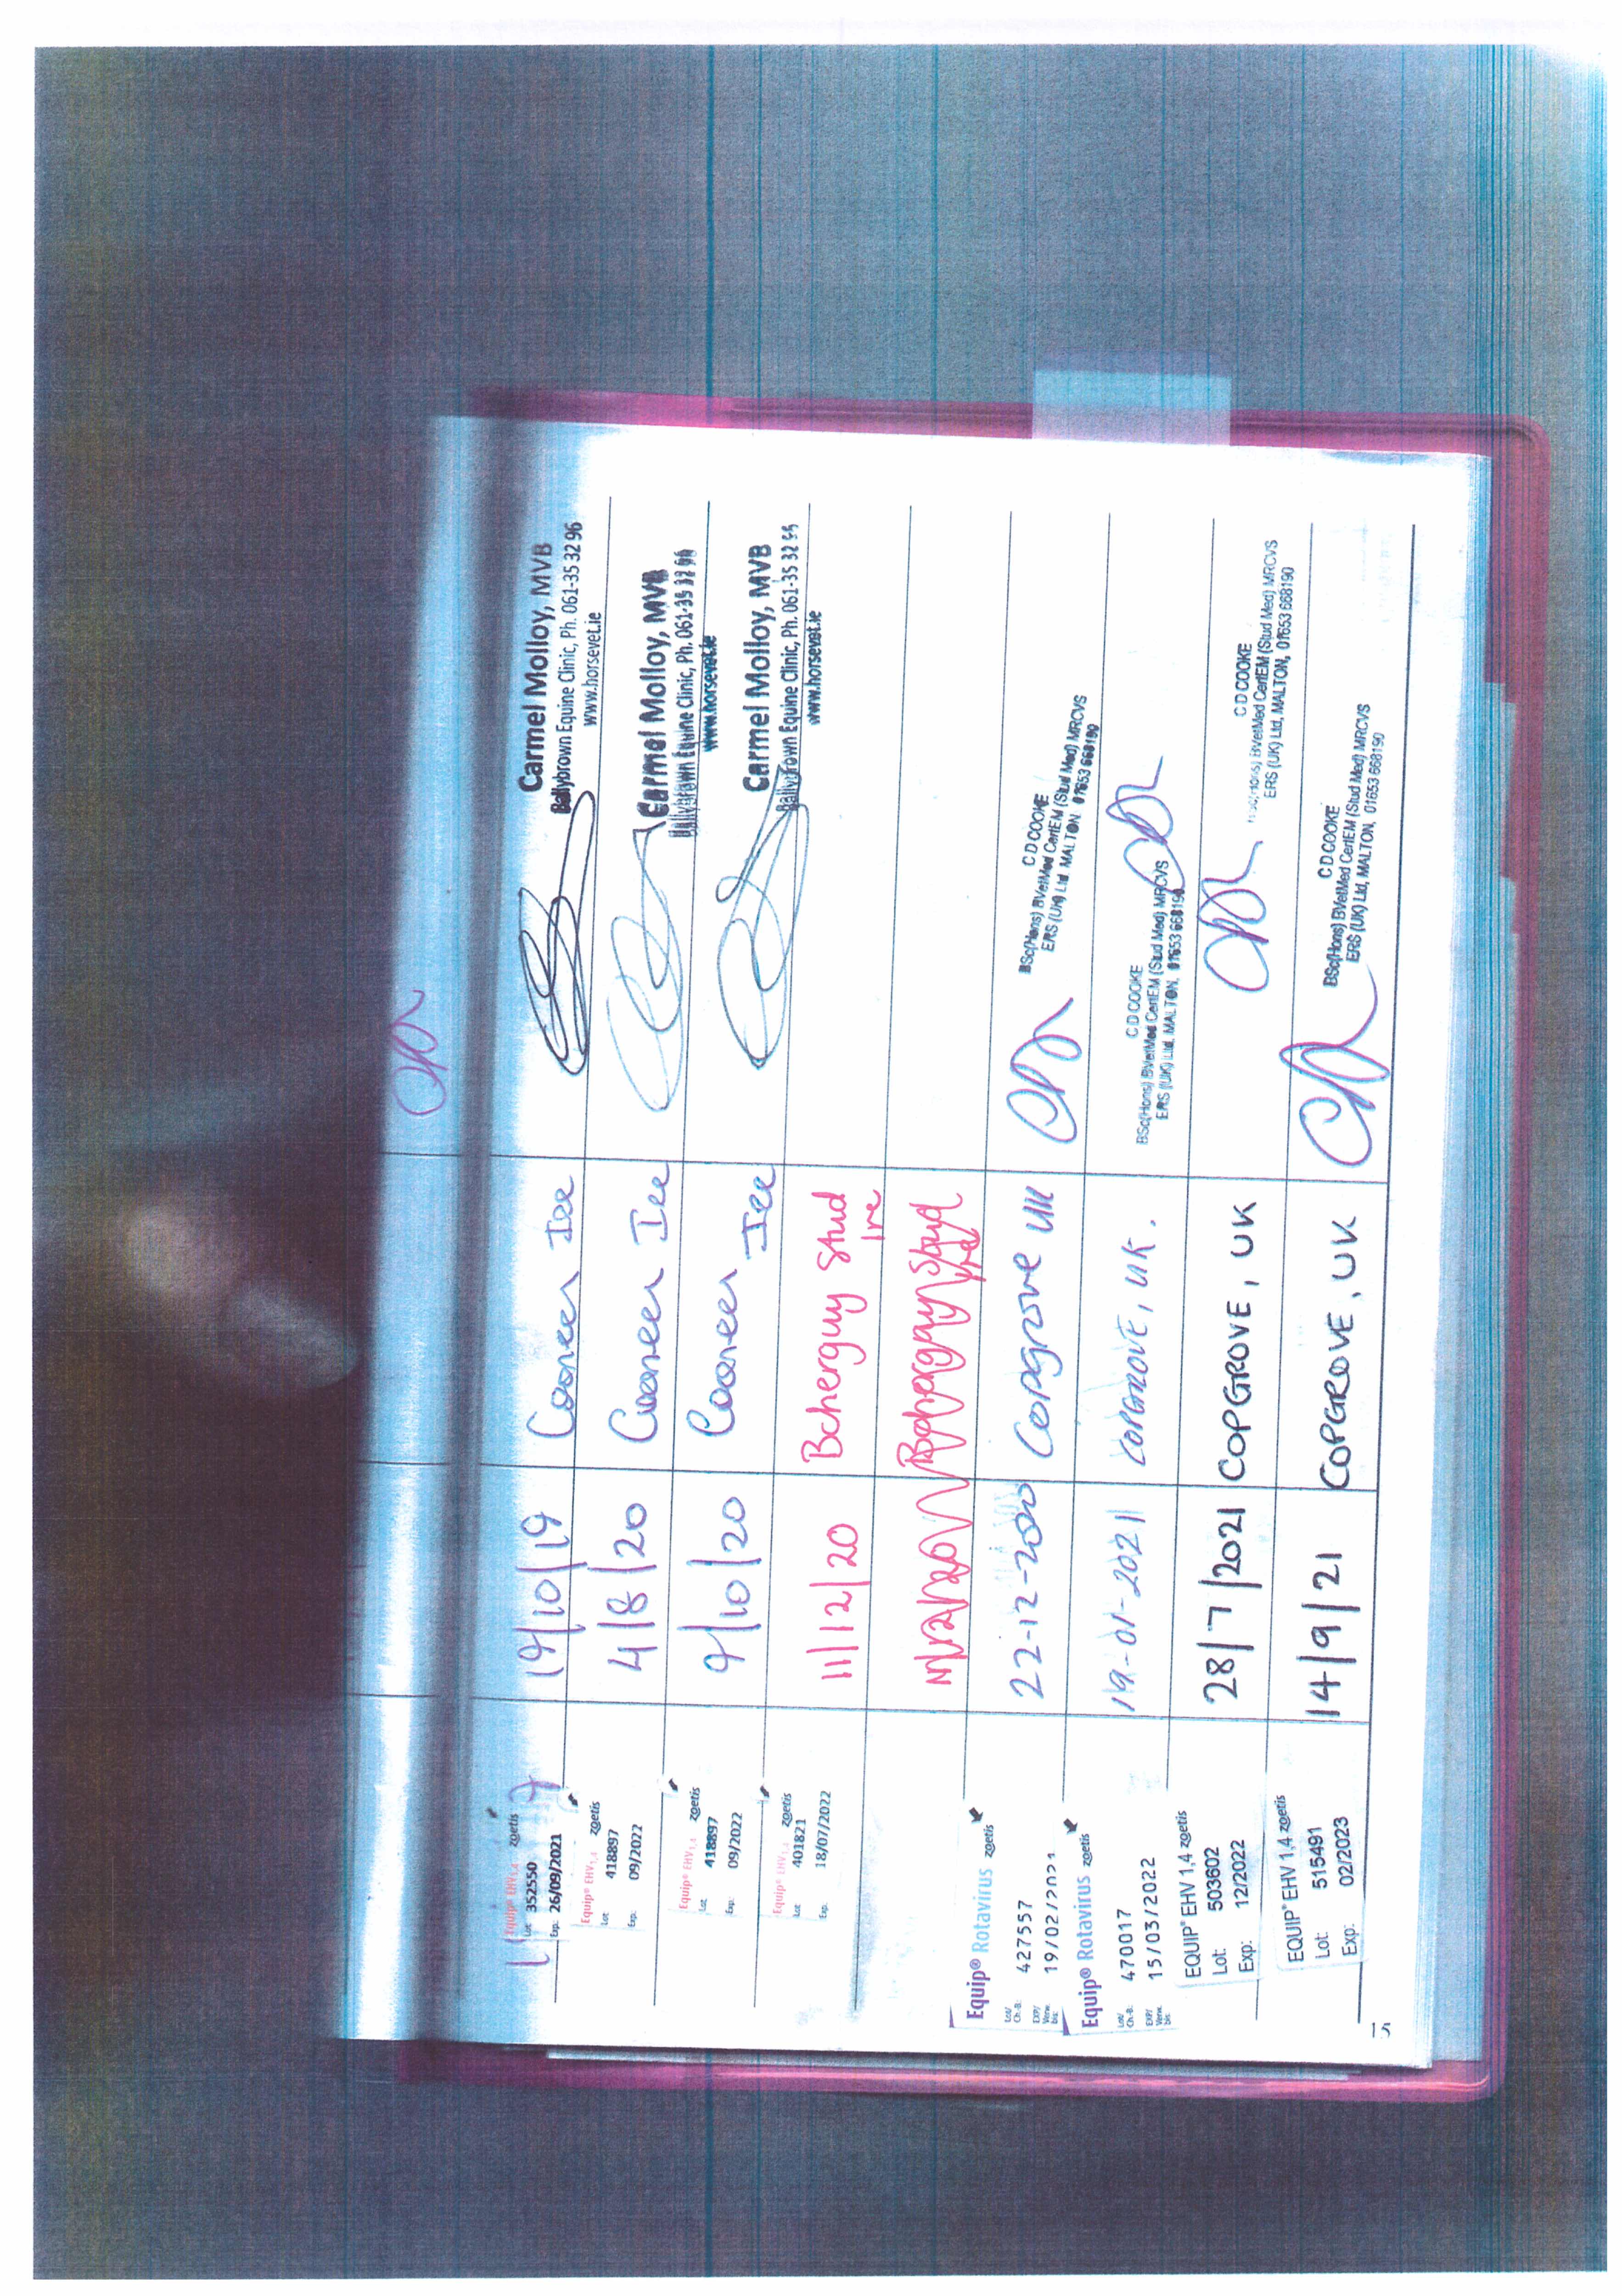 Equip® EHV1,4 zoetis
Lot 352550
Exp. 26/09/2021
19/10/19
Ire
Carmel Molloy, MVB
Ballybrown Equine Clinic, Ph. 061-35 32 96
www.horsevet.ie
Equip® EHV1,4 zoetis
Lot 418897
Exp: 09/2022
4/8/20
Ire
Carmel Molloy, MVB
Ballybrown Equine Clinic, Ph. 061-35 32 96
www.horsevet.ie
Equip® EHV1,4 zoetis
Lot 418897
Exp: 09/2022
9/10/20
Ire
Carmel Molloy, MVB
Ballybrown Equine Clinic, Ph. 061-35 32 96
www.horsevet.ie
Equip® EHV1,4 zoetis
Lot 401821
Exp. 18/07/2022
11/12/20
Boherguy Stud
Ire
Boherguy Stud
Ire
Equip® Rotavirus zoetis
Lot/ Ch.-B.: 427557
EXP/ Verw. bis: 19/02/2021
22-12-2020
Copgrove UK
C D COOKE
BSc(Hons) BVetMed CertEM (Stud Med) MRCVS
ERS (UK) Ltd, MALTON, 01653 668190
Equip® Rotavirus zoetis
Lot/ Ch.-B.: 470017
EXP/ Verw. bis: 15/03/2022
19-01-2021
COPGROVE, UK.
C D COOKE
BSc(Hons) BVetMed CertEM (Stud Med) MRCVS
ERS (UK) Ltd, MALTON, 01653 668190
EQUIP® EHV 1,4 zoetis
Lot: 503602
Exp: 12/2022
28/7/2021
COPGROVE, UK
C D COOKE
BSc(Hons) BVetMed CertEM (Stud Med) MRCVS
ERS (UK) Ltd, MALTON, 01653 668190
EQUIP® EHV 1,4 zoetis
Lot: 515491
Exp: 02/2023
14/9/21
COPGROVE, UK
C D COOKE
BSc(Hons) BVetMed CertEM (Stud Med) MRCVS
ERS (UK) Ltd, MALTON, 01653 668190
15